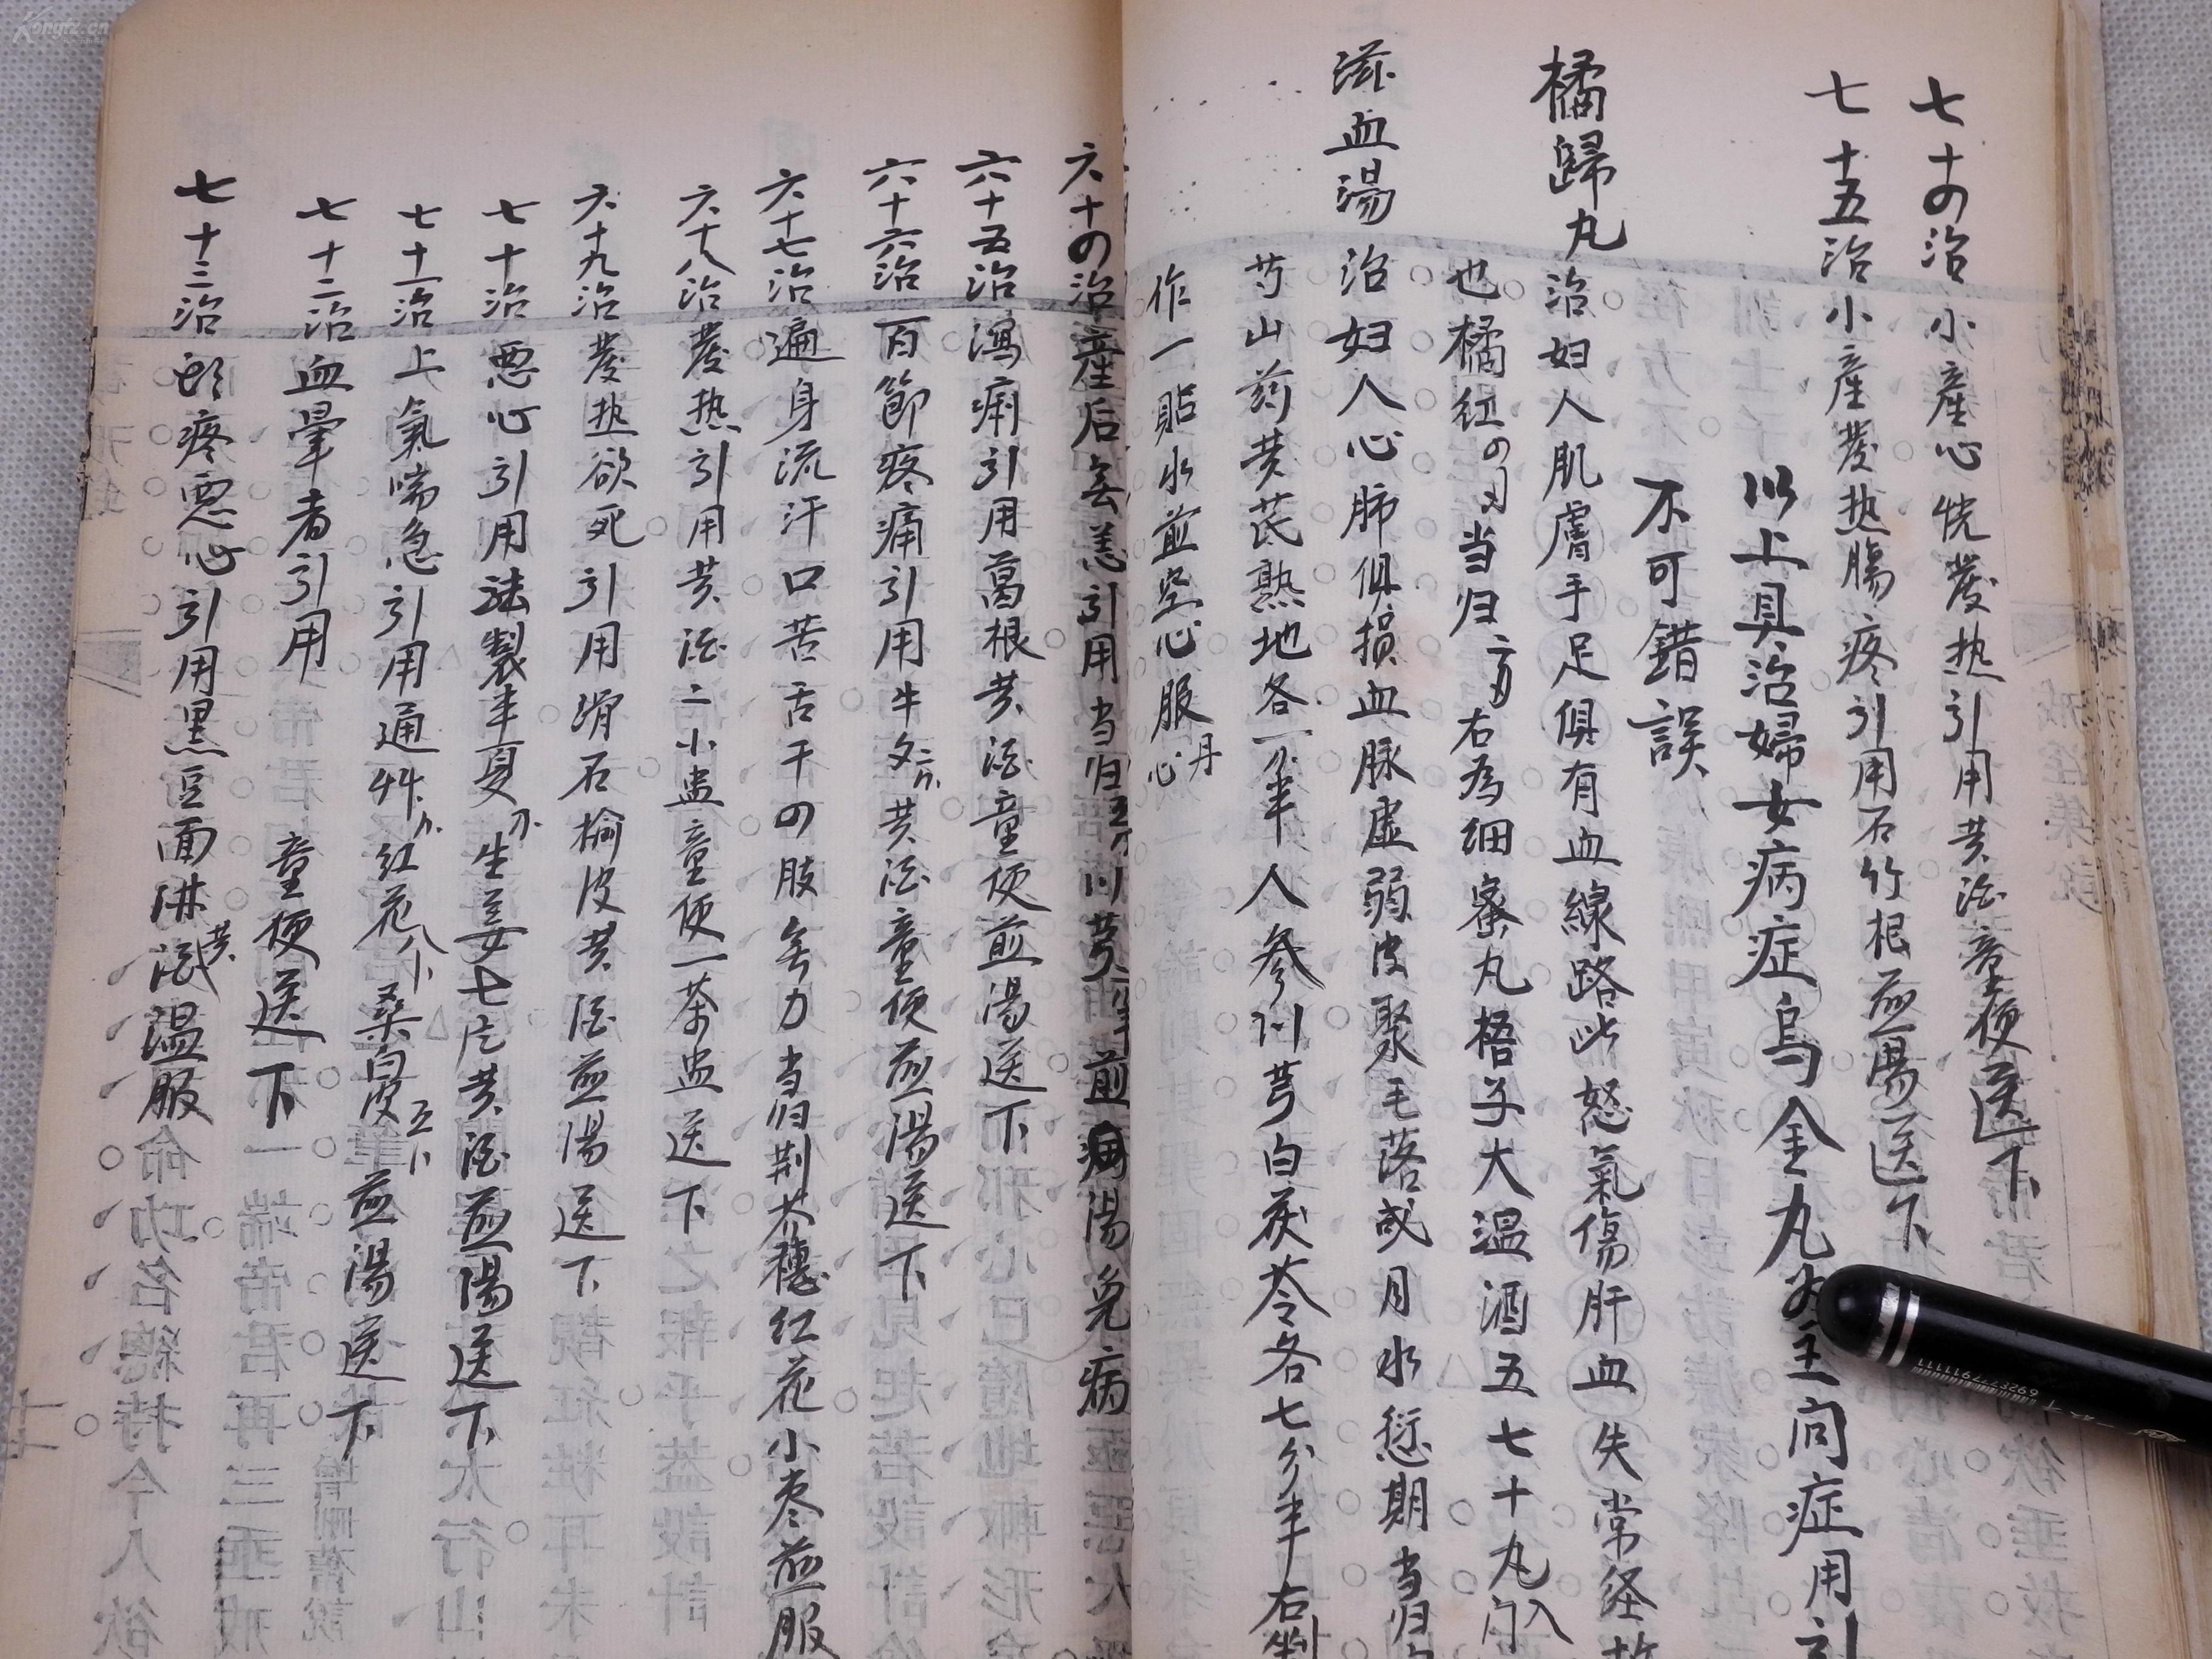 七十四治小產心恍發热引用黄酒童便送下
七十五治小產發热腸疼引用石竹根煎湯送下
以上具治婦女病症烏金丸为主向症用引
不可錯誤
橘歸丸治妇人肌膚手足俱有血線路此怒氣傷肝血失常经故
也橘红四月当归二月右為细蜜丸梧子大温酒五七十丸入门
滋血湯治妇人心肺俱損血脉虚弱皮聚毛落或月水愆期当归白
芍山药黄芪熟地各一分半人參川芎白茯苓各七分半右剉
作一贴水煎空心服丹心
六十四治產后無恙引用当归五分川芎一分半煎湯免病
六十五治瀉痢引用葛根黄酒童便煎湯送下
六十六治百節疼痛引用牛夕二分黄酒童便煎湯送下
六十七治遍身流汗口苦舌干四肢無力当归荆芥穗红花小枣煎服
六十八治發热引用黄酒二小盅童便一茶盅送下
六十九治發热欲死引用滑石榆皮黄酒煎湯送下
七十治悪心引用法製半夏分生姜七片黄酒煎湯送下
七十一治上氣喘急引用通艸分红花八卜桑白皮五卜煎湯送下
七十二治血暈者引用童便送下
七十三治頭疼悪心引用黑豆面淋黄酒温服